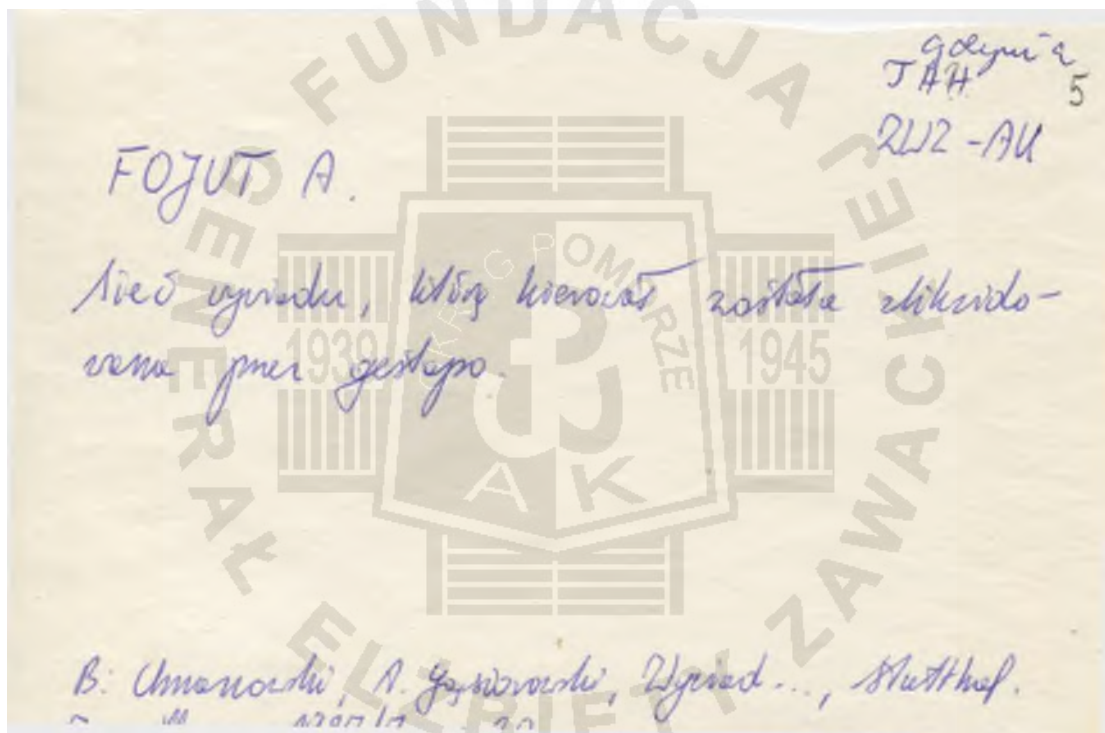 Gdynia
TAH 5
ZWZ-AK
FOJUT A.
Sieć wywiadu, którą kierował została zlikwido-
wana przez gestapo.
B. Chrzanowski, A. Gąsiorowski, Wywiad..., Stutthof.
FUNDACJA
GENERAŁ ELŻBIETY ZAWACKIEJ
OKRĘG POMORZE
1939
1945
AK